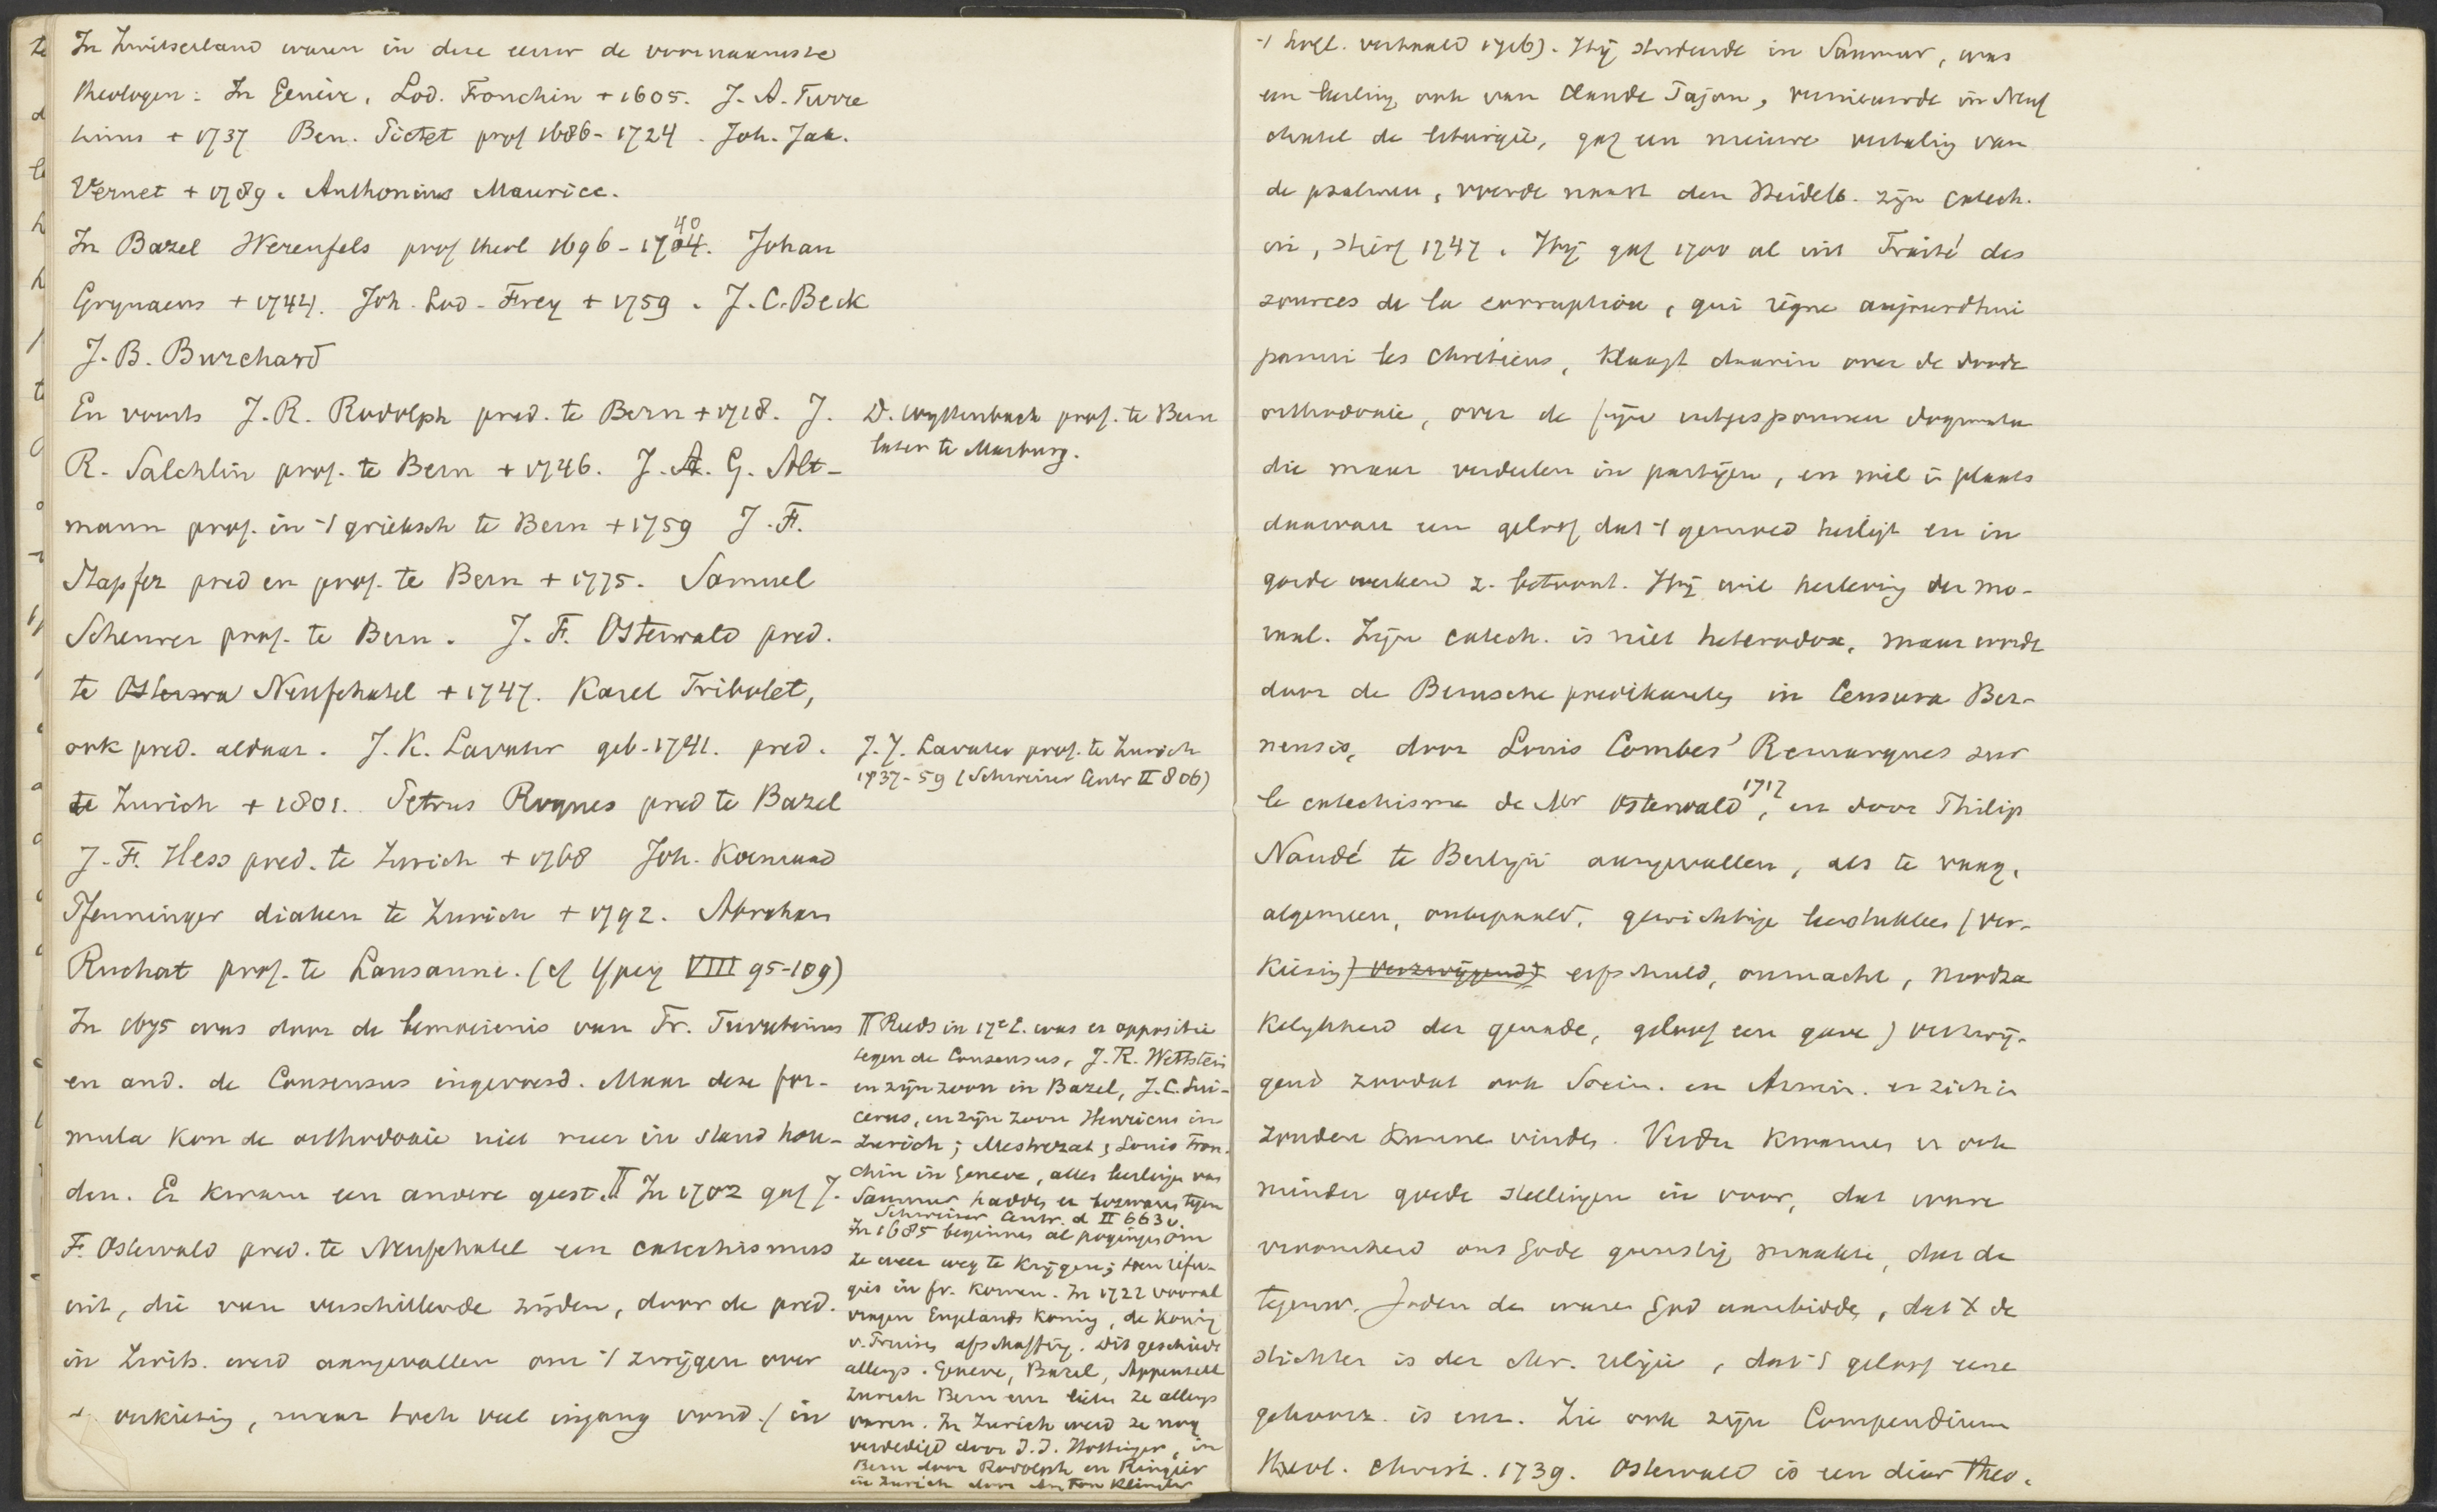 In Zwitserland waren in deze eeuw de voornaamste
theologen: In Genève, Lod. Tronchin + 1605. J. A. Turre
tinus + 1737 Ben. Pictet prof 1686-1724. Joh. Jak.
Vernet + 1789. Anthonius Maurice.
In Bazel Werenfels prof theol 1696-1740. Johan
Grynaeus + 1744. Joh. Lod. Frey + 1759. J. C. Beck
J. B. Burchard
En voorts J. R. Rudolph pred. te Bern + 1718. J.
R. Salchlin prof. te Bern + 1746. J. G. Alt-
mann prof. in 't grieksch te Bern + 1759 J. F.
Stapfer pred en prof. te Bern + 1775. Samuel
Scheurer prof. te Bern. J. F. Osterwald pred.
te Neufchatel + 1747. Karel Tribolet,
ook pred. aldaar. J. K. Lavater geb. 1741. pred.
te Zurich + 1801. Petrus Roques pred te Bazel
J. F. Hess pred. te Zurich + 1768 Joh. Koenraad
Pfenninger diaken te Zurich + 1792. Abraham
Ruchat prof. te Lausanne. (cf Ypey VIII 95-109)
In 1675 was door de bemoeienis van Fr. Turretinus
en and. de Consensus ingevoerd. Maar deze for-
mula kon de orthodoxie niet meer in stand hou-
den. Er kwam een andere geest. II In 1702 gaf J.
F. Osterwald pred. te Neufchatel een catechismus
uit, die van verschillende zijden, door de pred.
in Zwits. werd aangevallen om 't zwijgen over
d. verkiezing, maar toch veel ingang vond. (in
D. Wyttenbach prof. te Bern
later te Marburg.
J. J. Lavater prof. te Zurich
1737-59 (Schweizer Centr II 806)
II Reeds in 17e E. was er oppositie
tegen de Consensus, J. R. Wettstein
en zijn zoon in Bazel, J. C. Sui-
cerus, en zijn zoon Henricus in
Zurich; Mestrezat, Louis Tron-
chin in Geneve, alles leerlingen van
Saumur hadden er bezwaar tegen
Schweizer Centr. d II 663 v.
In 1685 beginnen al pogingen om
ze weer weg te krijgen; toen refu-
giés in fr. kwamen. In 1722 vooral
vragen Engelands koning, de koning
v. Pruisen afschaffing. Dit geschiedde
allengs. Geneve, Bazel, Appenzell
Zurich Bern enz lieten ze allengs
varen. In Zurich werd ze nog
verdedigd door J. J. Hottinger, in
Bern door Rudolph en Ringier
in Zurich door Anton Klingler
't Engl. vertaald 1716). Hij studeerde in Saumur, was
een leerling ook van Claude Pajon, vernieuwde in Neuf
chatel de liturgie, gaf een nieuwe vertaling van
de psalmen, voerde naast den Heidelb. zijn catech.
in, stierf 1747. Hij gaf 1700 al uit Traité des
sources de la corruption, qui règne aujourdhui
parmi les chretiens, klaagt daarin over de doode
orthodoxie, over de fijn uitgesponnen dogmata
die maar verdeelen in partijen, en wil in plaats
daarvan een geloof dat 't gemoed heiligt en in
goede werken z. betoont. Hij wil herleving der mo-
raal. Zijn catech. is niet heterodox, maar werd
door de Bernsche predikanten in Censura Ber-
nensis, door Louis Combes' Remarques sur
le catechisme de Mr Osterwald 1717, en door Philip
Naudé te Berlijn aangevallen, als te vaag,
algemeen, onbepaald, gewichtige leerstukken (ver-
kiezing) verzwijgend) erfschuld, onmacht, noodza
kelijkheid der genade, geloof een gave) verzwij-
gend zoodat ook Socin. en Armin. er zich in
zouden kunnen vinden. Verder kwamen er ook
minder goede stellingen in voor, dat ware
vroomheid ons Gode gunstig maakte, dat de
tegenw. Joden den waren God aanbidden, dat X de
stichter is der chr. religie, dat 't geloof eene
gehoorz. is enz. Zie ook zijn Compendium
theol. christ. 1739. Osterwald is een dier theo-